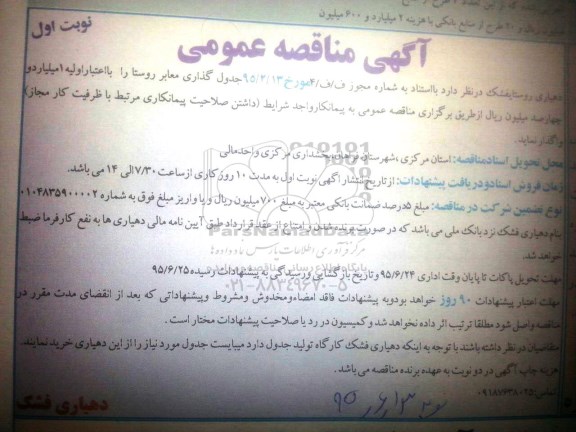 نوبت اول
آگهی مناقصه عمومی
دهیاری روستایفشک درنظر دارد بااستناد به شماره مجوز ف/ف/۴مورخ۹۵/۲/۱۳جدول گذاری معابر روستا را بااعتباراولیه۱میلیاردو
چهارصد میلیون ریال ازطریق برگزاری مناقصه عمومی به پیمانکارواجد شرایط (داشتن صلاحیت پیمانکاری مرتبط با ظرفیت کار مجاز)
واگذار نماید.
محل تحویل اسنادمناقصه: استان مرکزی ،شهرستان فراهان،بخشداری مرکزی واحدمالی
زمان فروش اسنادودریافت پیشنهادات: ازتاریخ انتشار آگهی نوبت اول به مدت ۱۰ روزکاری ازساعت۷/۳۰الی ۱۴ می باشد.
نوع تضمین شرکت در مناقصه: مبلغ ۵درصد ضمانت بانکی معتبر به مبلغ ۷۰۰میلیون ریال ویا واریز مبلغ فوق به شماره ۰۱۰۴۸۳۵۹۰۰۰۰۲
بنام دهیاری فشک نزدبانک ملی می باشد که در صورت برنده شدن و امتناع از عقد قرارداد طبق آیین نامه مالی دهیاری ها به نفع کارفرما ضبط
خواهد شد.
مهلت تحویل پاکات تا پایان وقت اداری ۹۵/۶/۲۴ وتاریخ بازگشایی ورسیدگی به پیشنهادات رسیده ۹۵/۶/۲۵
مهلت اعتبار پیشنهادات ۹۰ روز خواهد بودوبه پیشنهادات فاقد امضاءومخدوش ومشروط وپیشنهاداتی که بعد از انقضای مدت مقرر در
مناقصه واصل شود مطلقا ترتیب اثر داده نخواهد شد و کمیسیون در رد یا صلاحیت پیشنهادات مختار است .
متقاضیان در نظر داشته باشند با توجه به اینکه دهیاری فشک کارگاه تولید جدول دارد میبایست جدول مورد نیاز را از این دهیاری خرید نمایند.
هزینه چاپ آگهی در دو نوبت به عهده برنده مناقصه می باشد.
تماس:۰۹۱۸۷۶۳۸۰۲۵
دهیاری فشک
ParsNamadData
۰۲۱-۸۸۳۴۹۶۷۰-۵